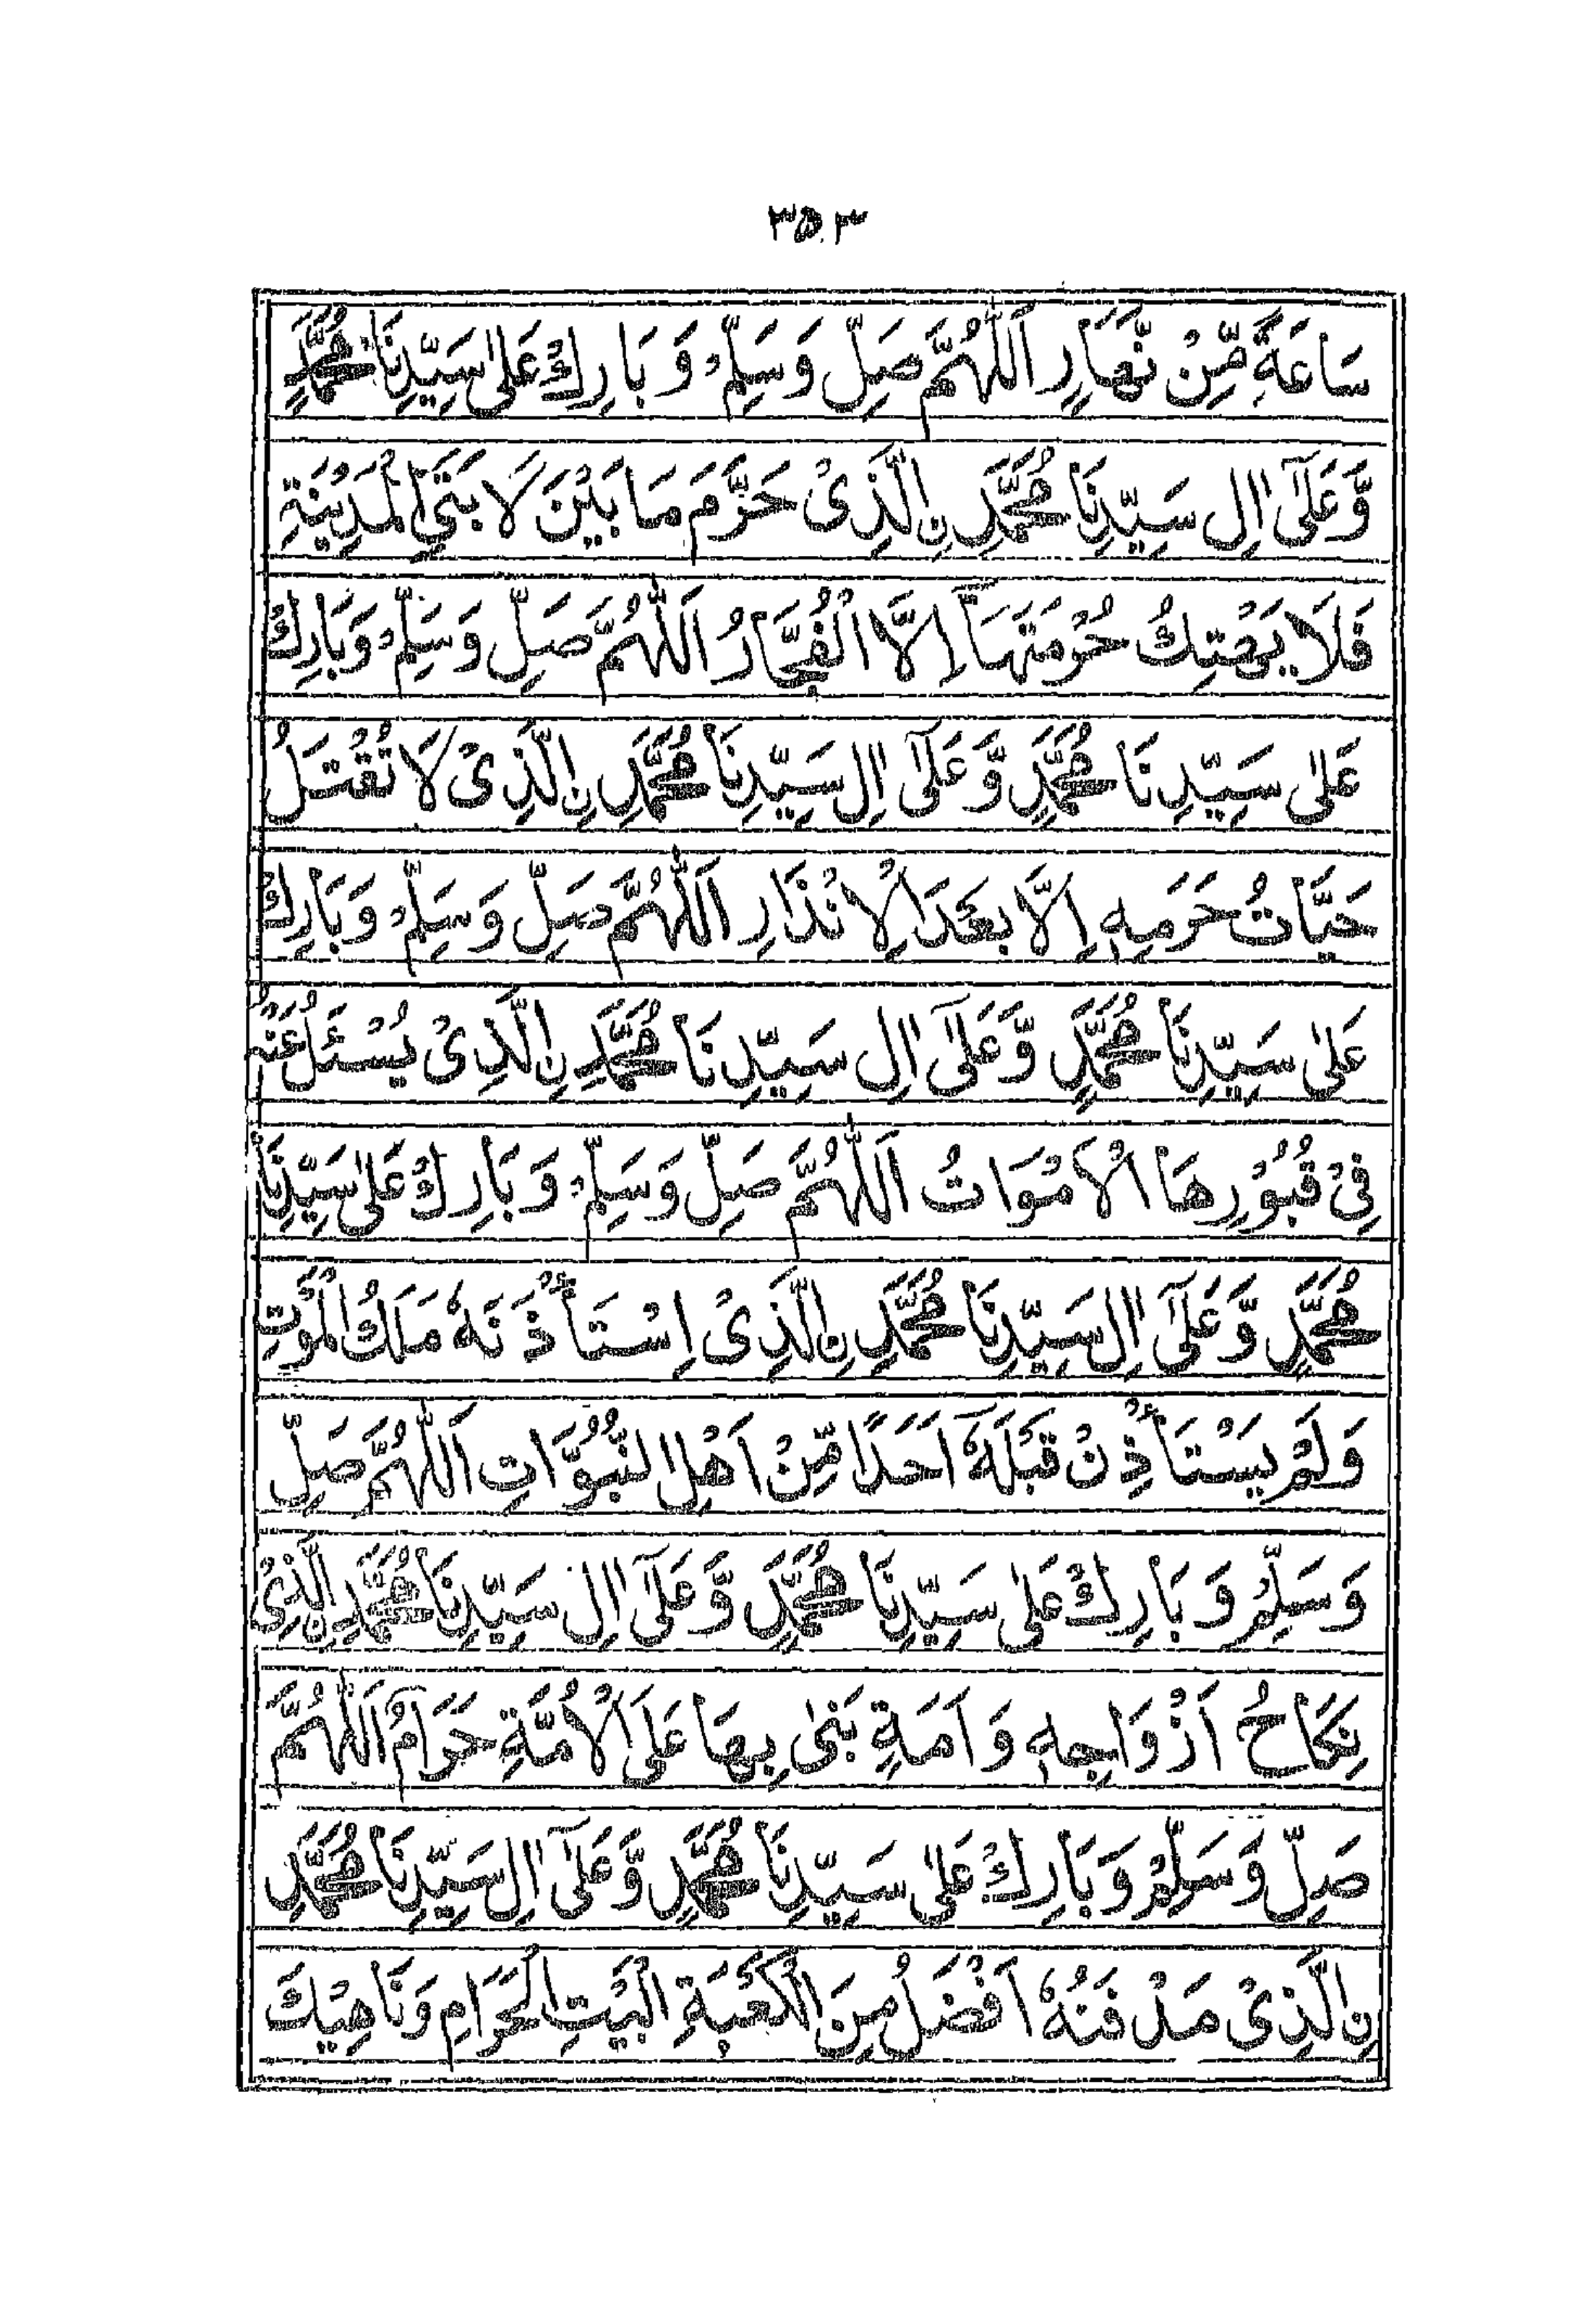 ۳۵۳
سَاعَةً مِّنْ نَّهَارٍ اَللّٰهُمَّ صَلِّ وَسَلِّمْ وَ بَارِكْ عَلٰى سَيِّدِنَا مُحَمَّدٍ
وَّعَلٰٓى اٰلِ سَيِّدِنَا مُحَمَّدِ نِ الَّذِىْ حَرَّمَ مَا بَيْنَ لَا بَتَىِ الْمَدِيْنَةِ
فَلَا يَهْتِكُ حُرْمَتَهَآ اِلَّا الْفُجَّارُ اَللّٰهُمَّ صَلِّ وَسَلِّمْ وَبَارِكْ
عَلٰى سَيِّدِنَا مُحَمَّدٍ وَّعَلٰٓى اٰلِ سَيِّدِنَا مُحَمَّدِ نِ الَّذِىْ لَا تُقْتَلُ
حَيَّاتُ حَرَمِهٖ اِلَّا بَعْدَ الْاِنْذَارِ اَللّٰهُمَّ صَلِّ وَسَلِّمْ وَبَارِكْ
عَلٰى سَيِّدِنَا مُحَمَّدٍ وَّعَلٰٓى اٰلِ سَيِّدِنَا مُحَمَّدِ نِ الَّذِىْ يُسْئَلُ عَنْهُ
فِىْ قُبُوْرِهَا الْاَمْوَاتُ اَللّٰهُمَّ صَلِّ وَسَلِّمْ وَبَارِكْ عَلٰى سَيِّدِنَا
مُحَمَّدٍ وَّعَلٰٓى اٰلِ سَيِّدِنَا مُحَمَّدِ نِ الَّذِىْ اِسْتَأْذَنَهٗ مَلَكُ الْمَوْتِ
وَلَمْ يَسْتَأْذِنْ قَبْلَهٗٓ اَحَدًا مِّنْ اَهْلِ النُّبُوَّاتِ اَللّٰهُمَّ صَلِّ
وَسَلِّمْ وَبَارِكْ عَلٰى سَيِّدِنَا مُحَمَّدٍ وَّعَلٰٓى اٰلِ سَيِّدِنَا مُحَمَّدِ نِ الَّذِىْ
نِكَاحُ اَزْوَاجِهٖ وَاَمَةٍ بَنٰى بِهَا عَلَى الْاُمَّةِ حَرَامٌ اَللّٰهُمَّ
صَلِّ وَسَلِّمْ وَبَارِكْ عَلٰى سَيِّدِنَا مُحَمَّدٍ وَّعَلٰٓى اٰلِ سَيِّدِنَا مُحَمَّدِ
نِ الَّذِىْ مَدْفَنُهٗ اَفْضَلُ مِنَ الْكَعْبَةِ الْبَيْتِ الْحَرَامِ وَنَاهِيْكَ